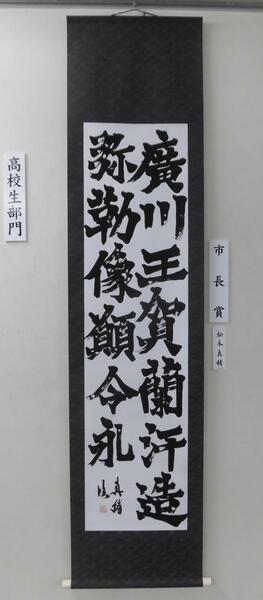 廣川王賀蘭汗造
弥勒像願令永
真緒
臨
市長賞
松本真緒
高校生部門